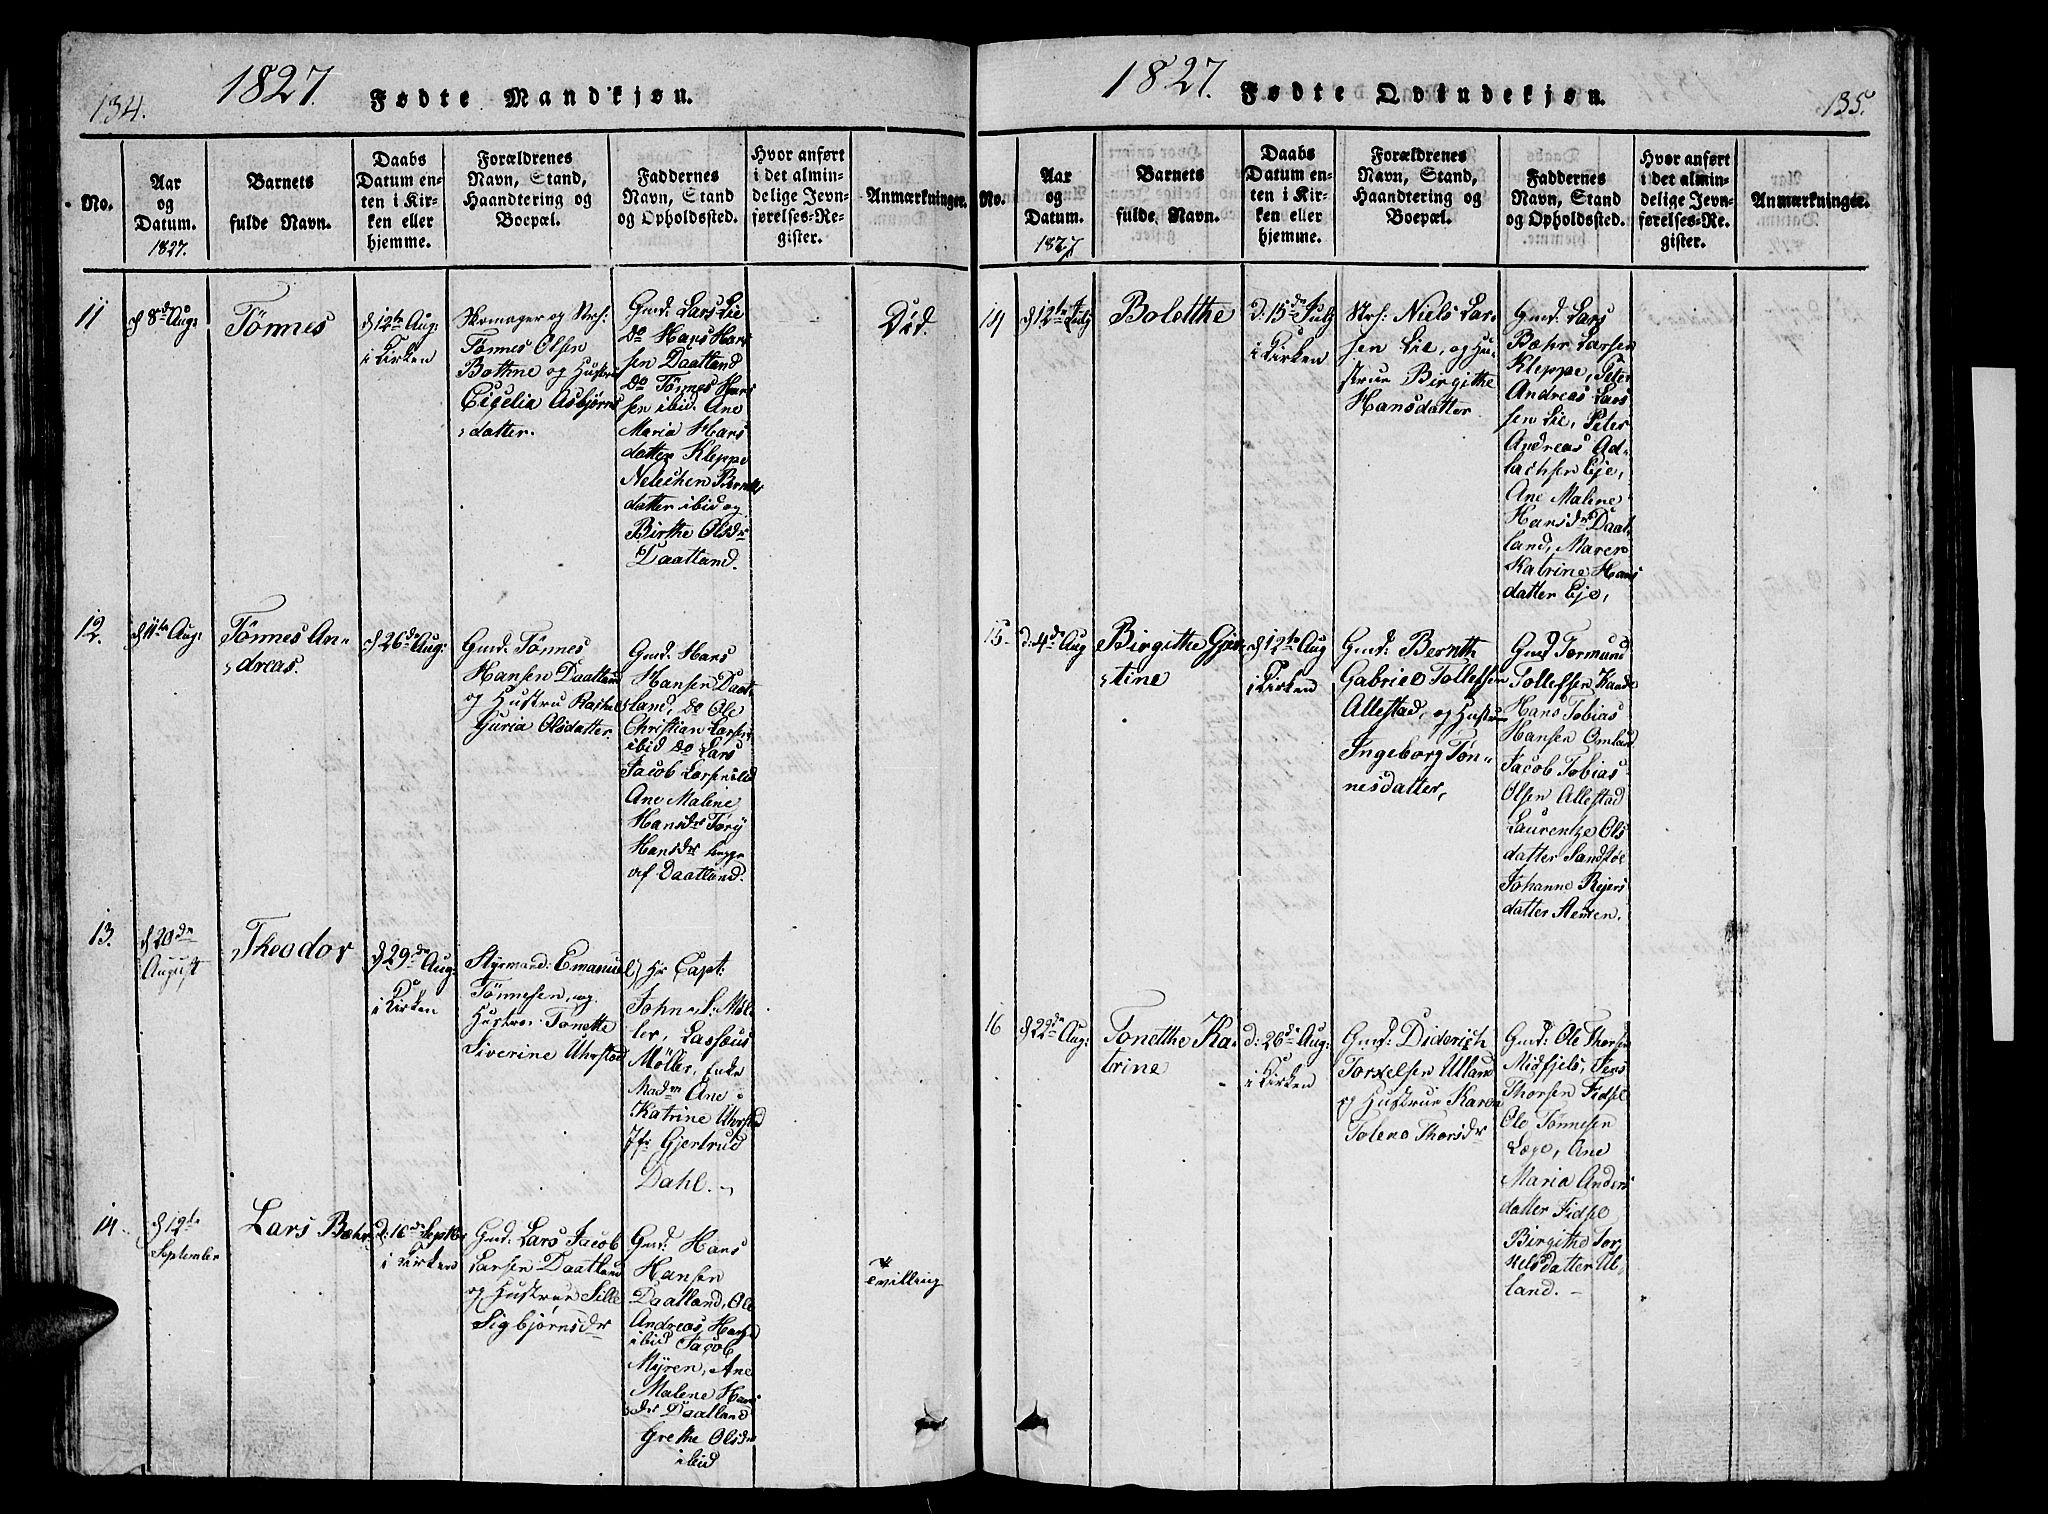 134.
1827.
Fødte Mandkjøn.
No.
Aar
og
Datum.
1827.
Barnets
fulde Navn.
Daabs
Datum en-
ten i Kir-
ken eller
hjemme.
Forældrenes
Navn, Stand,
Haandtering og
Boepæl.
Faddernes
Navn, Stand
og Opholdssted.
Hvor anført
i det almin-
delige Jevn-
førelses-Re-
gister.
Anmærkninger.
11
d 8de Aug:
Tönnes
d 12te Aug:
i Kirken
Skomager og Strs:
Tönnes Olsen
Bothne og Hustru
Cicelia Asbjörns
datter.
Gmd: Lars Lie
Do Hans Han
sen Daatland
Do Tönnes Han
sen ibid. Ane
Maria Hans
datter Kleppe
Nelechen Bernts
datter ibid og
Birthe Olsdr
Daatland.
Död.
12.
d 11te Aug:
Tönnes An-
dreas.
d 26de Aug:
Gmd: Tönnes
Hansen Daatland
og Hustru Rachel
Guria Olsdatter.
Gmd: Hans
Hansen Daat
land, Do Ole
Christian Larsen
ibid Do Lars
Jacob Larsen ibid
Ane Malene
Hansdr Torÿ
Hansdr begge
af Daatland.
13.
d 20de
August
Theodor
d 29de Aug:
i Kirken
Styrmand: Emanuel
Tönnesen, og
Hustru Tonette
Siverine Uhrstad
Hr Capt:
John L: Möl
ler, Lassæus
Möller, Enke
Madm Ane
Katrine Uhrstad
Jfr Gjertrud
Dahl.
14.
d 12te
September
Lars Bæhr
d: 16de Septbr
i Kirken
Gmd: Lars Jacob
Larsen Daatland
og Hustrue Sille
Sigbjørnsdr
Gmd: Hans
Hansen
Daatland, Ole
Andreas Hansen
ibid Jacob
Myren, Ane
Malene Hans
dr Daatland
Grethe Olsdr
ibid
tvilling
1827.
Fødte Qvindekjøn.
135.
No.
Aar
og
Datum.
1827
Barnets
fulde Navn.
Daabs
Datum en-
ten i Kir-
ken eller
hjemme.
Forældrenes
Navn, Stand,
Haandtering og
Boepæl.
Faddernes
Navn, Stand
og Opholdssted.
Hvor anført
i det almin-
delige Jevn-
førelses-Re-
gister.
Anmærkninger.
14
d 12te July
Bolethe
d: 15de July
i Kirken
Strs: Niels Lar
sen Lie, og Hu-
strue Birgithe
Hansdatter
Gmd: Lars
Bæhr Larsen
Kleppe, Peter
Andreas Lars
sen Lie, Peter
Andreas Ad-
lachsen Eje,
Ane Malene
Hansdr Daat
land, Maren
Katrine Hans
datter Eje,
15.
d: 4de Aug
Birgithe Gjer
tine
d 12te Aug
i Kirken
Gmd: Bernth
Gabriel Tollefsen
Allestad, og Hustrue
Ingeborg Tön-
nesdatter,
Gmd Tormund
Tollefsen Kande
Hans Tobias
Hansen Omland
Jacob Tobias
Olsen Allestad
Laurentze Ols
datter Sandstöe
Johanne Rejers
datter Stensen.
16
d 22de Aug:
Tonethe Ka-
trine
d: 26de Aug:
i Kirken
Gmd: Diderich
Torkelsen Ulland
og Hustrue Karen
Tolene Thorsdr
Gmd: Ole Thorsen
Midfjels, Jens
Thorsen Fidsel
Ole Tönnesen
Lege, Ane
Maria Anders
datter Fidsel
Birgithe Tor
kelsdatter Ul-
land.